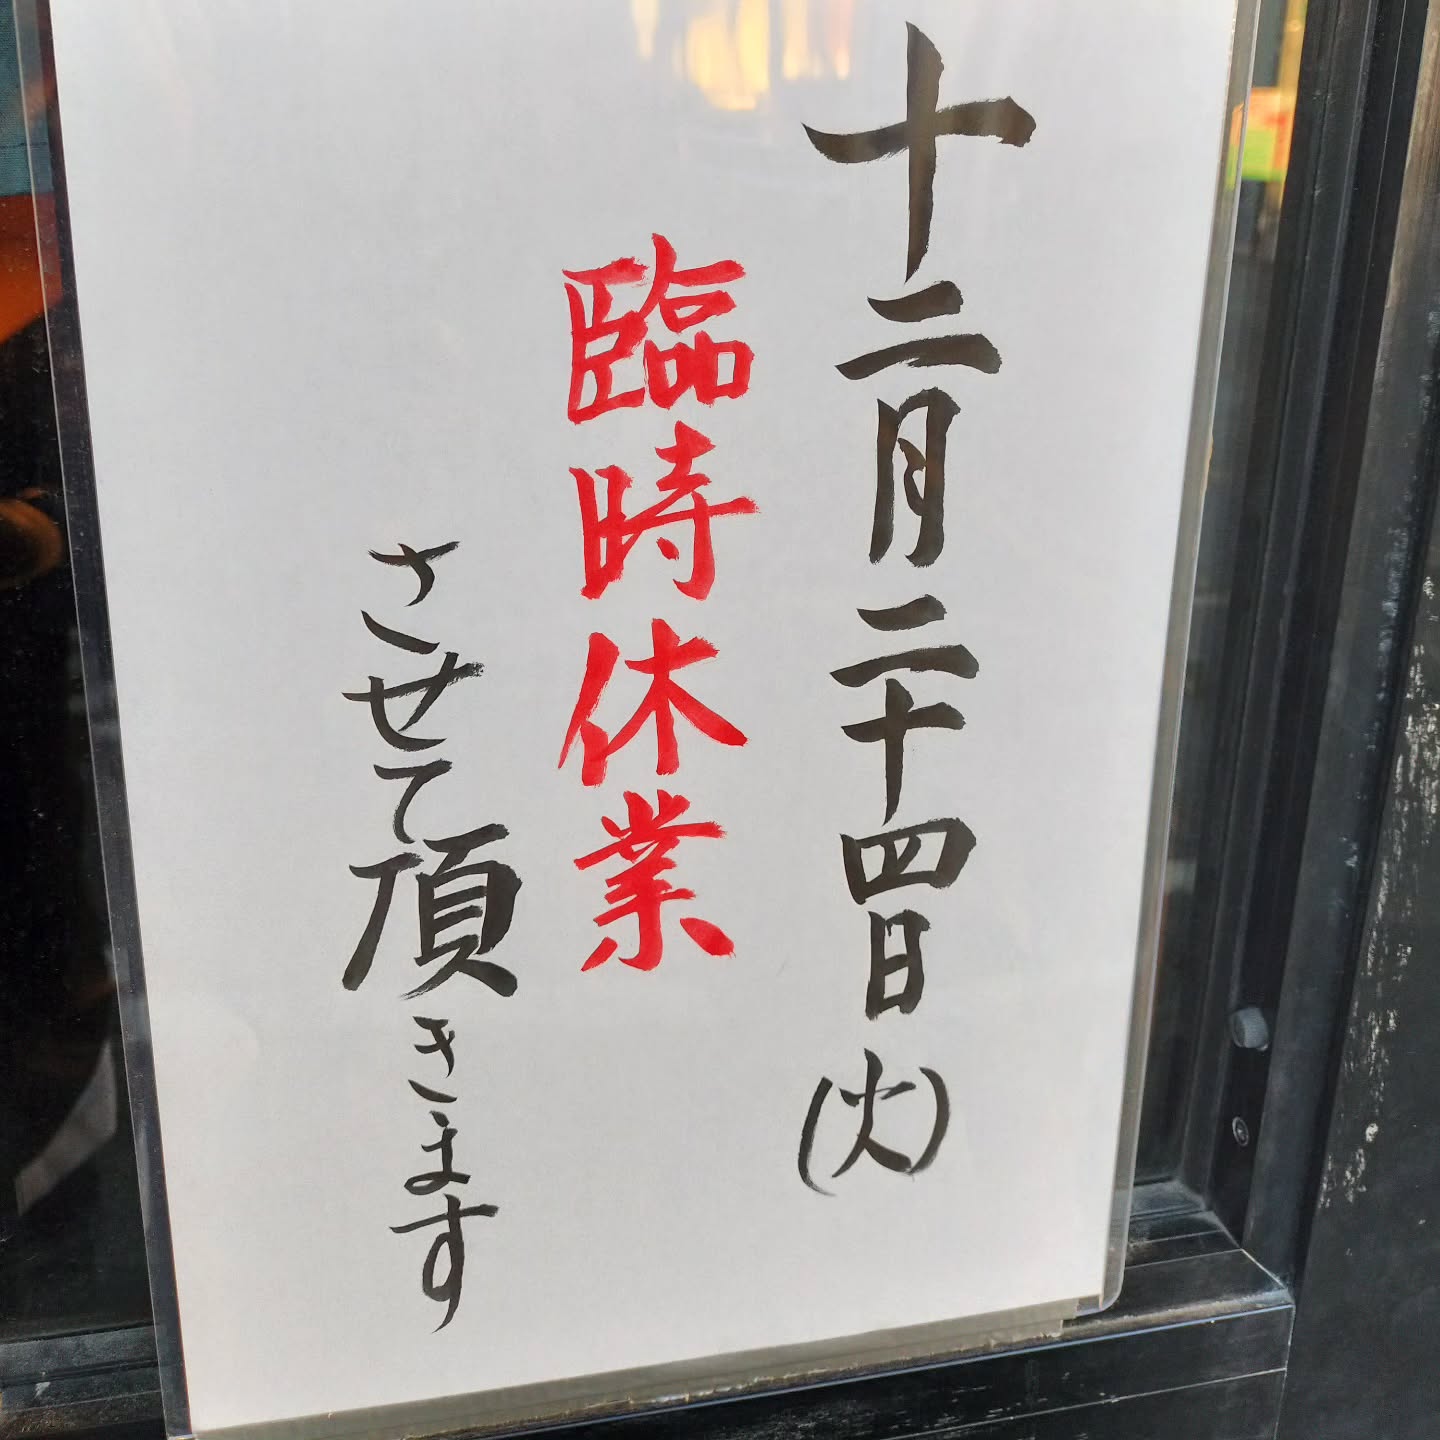 十二月二十四日(火)
臨時休業
させて頂きます